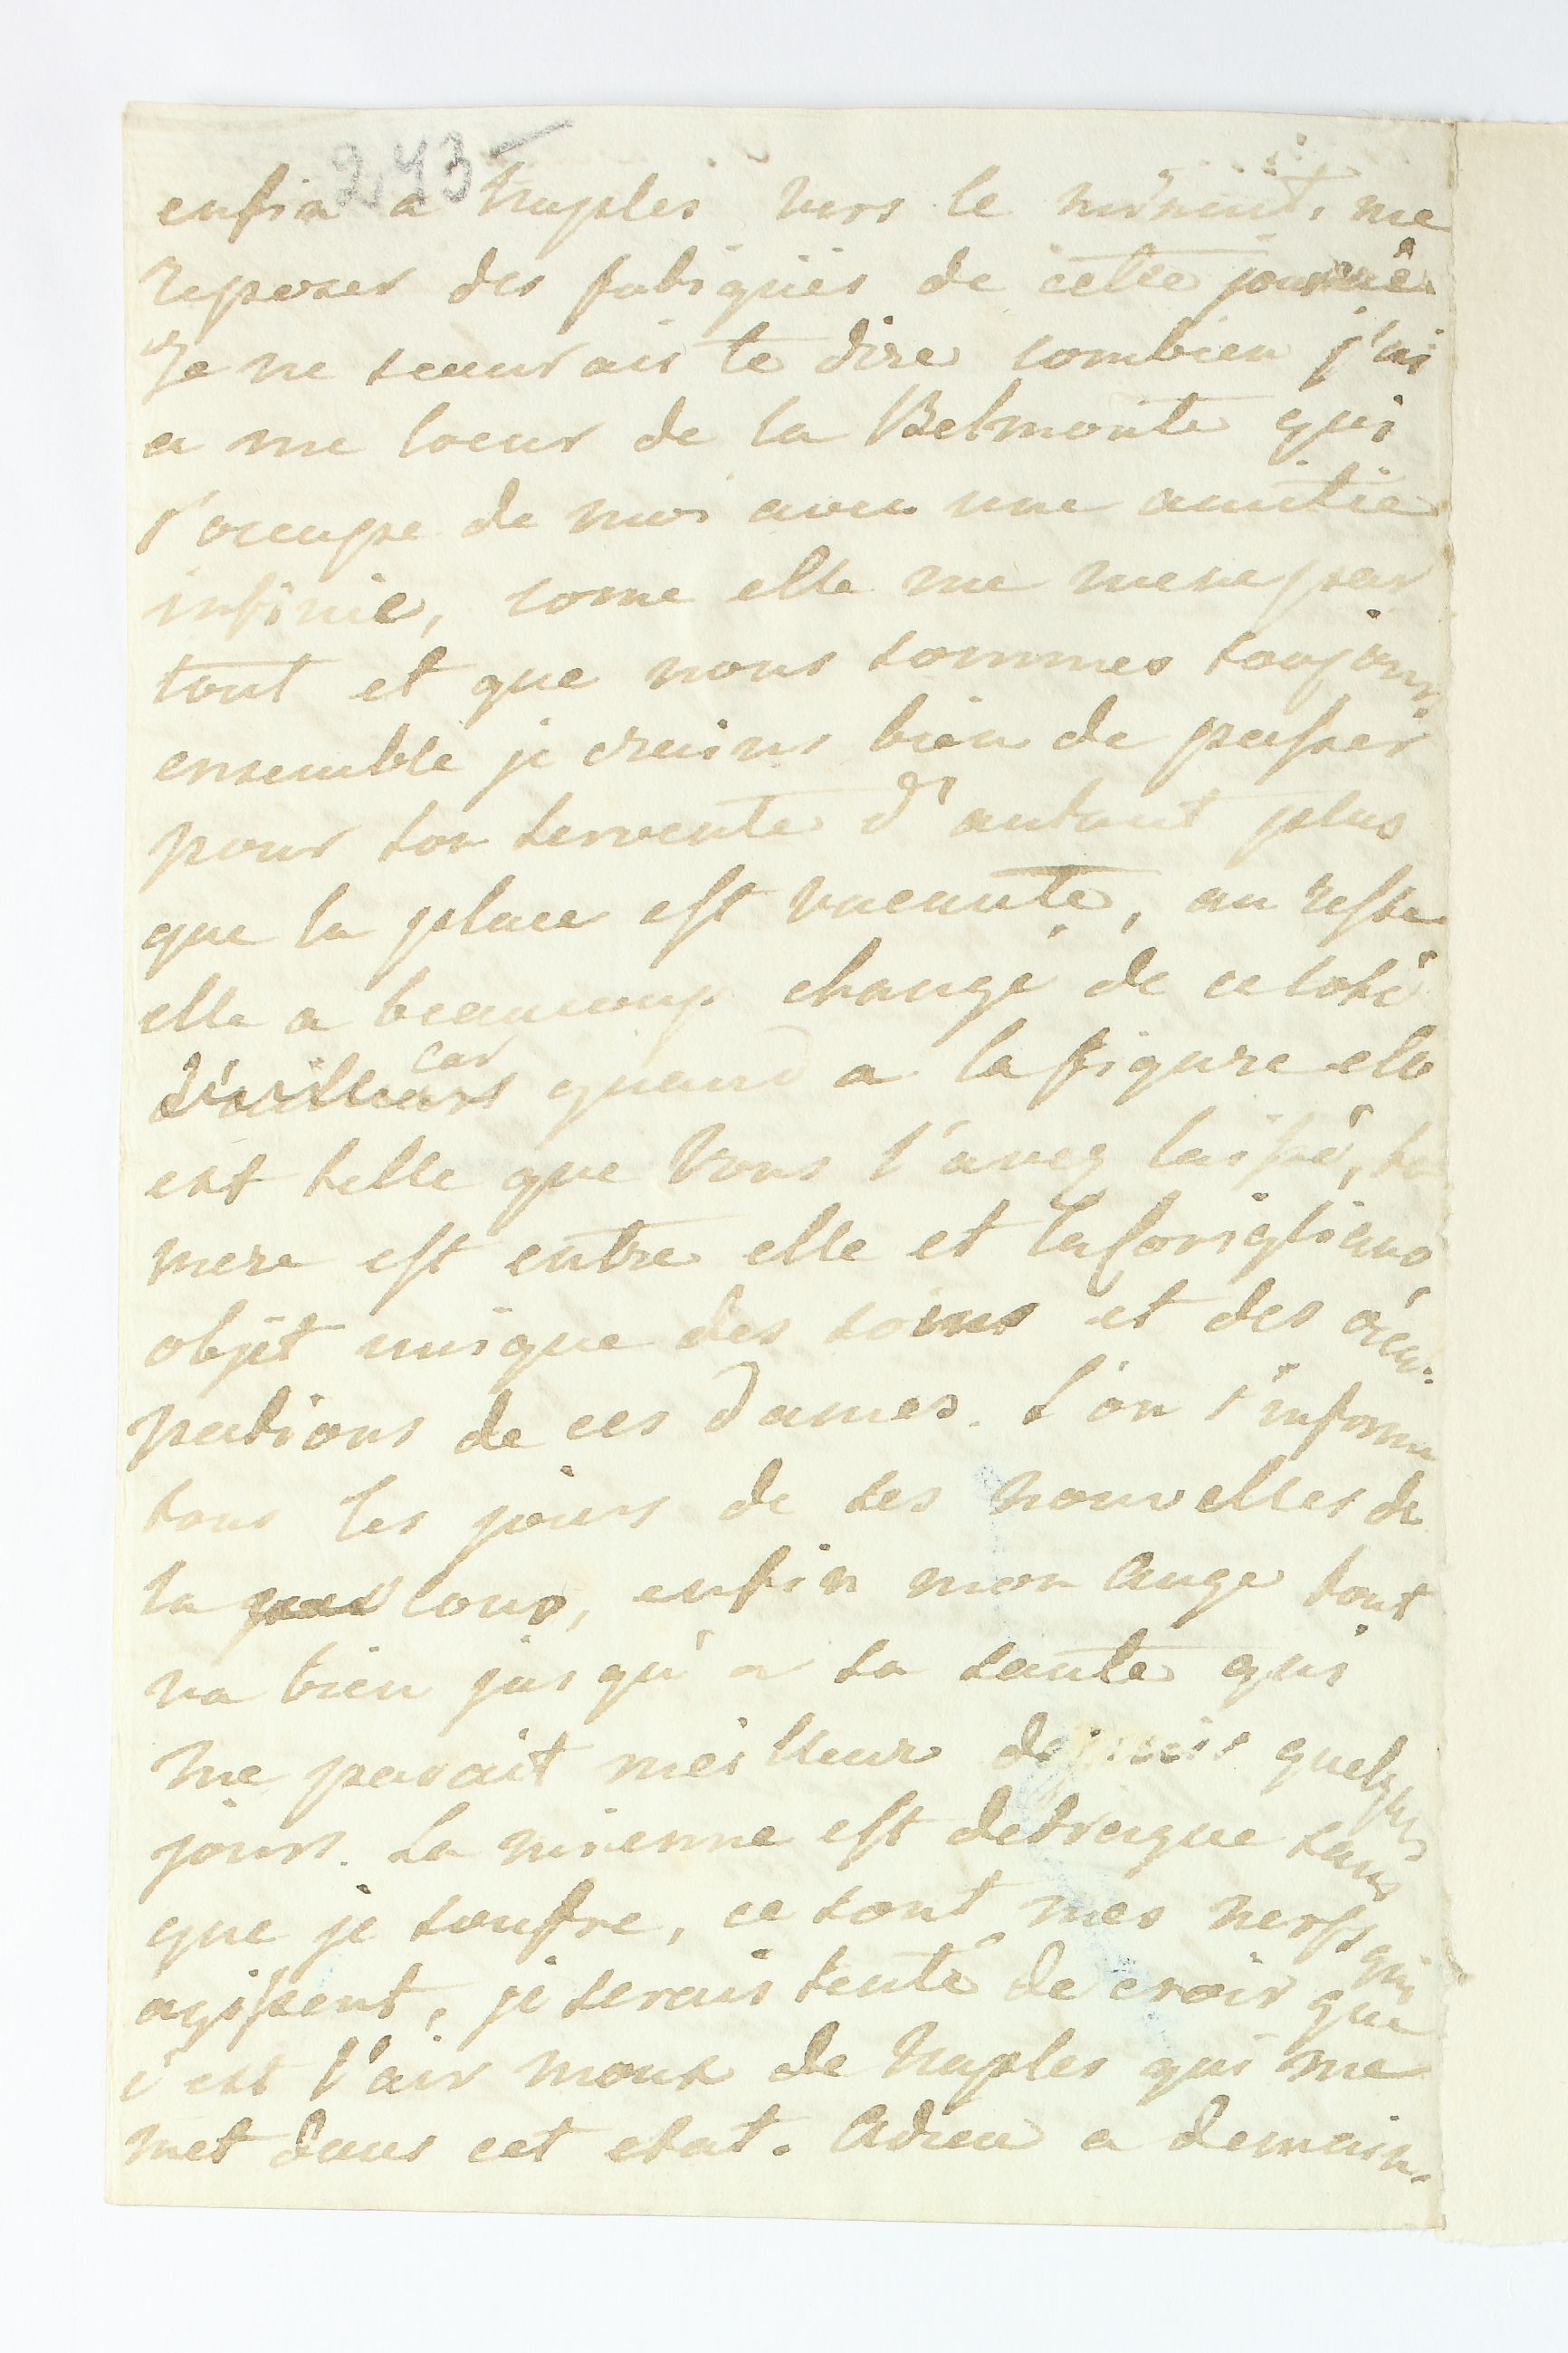 243
enfin a Naples vers le minuit, me
reposer des fatigues de cette journée
Je ne scaurais te dire combien j'ai
a me loeur de la Belmonte qui
s'occupe de moi avec une amitié
infinie, come elle me mene par
tout et que nous sommes toujours
ensemble je crains bien de passer
pour son servente d'autant plus
que la place est vacante, au reste
elle a beaucoup changé de ce coté
d'ailleurs car quand a la figure elle
est telle que Vous l'avez laissé, ta
mere est entre elle et la Corigliano
objet unique des soins et des occu-
pations de ces Dames. L'on s'informe
tous les jours de ses nouvelles de
la cour, enfin mon Ange tout
va bien jusqu'a sa santé qui
me parait meilleur depuis quelques
jours. La mienne est detraque sans
que je soufre, ce sont mes nerfs qui
agissent, je serais tenté de croir que
c'est l'air mous de Naples qui me
met dans cet etat. Adieu a demain.